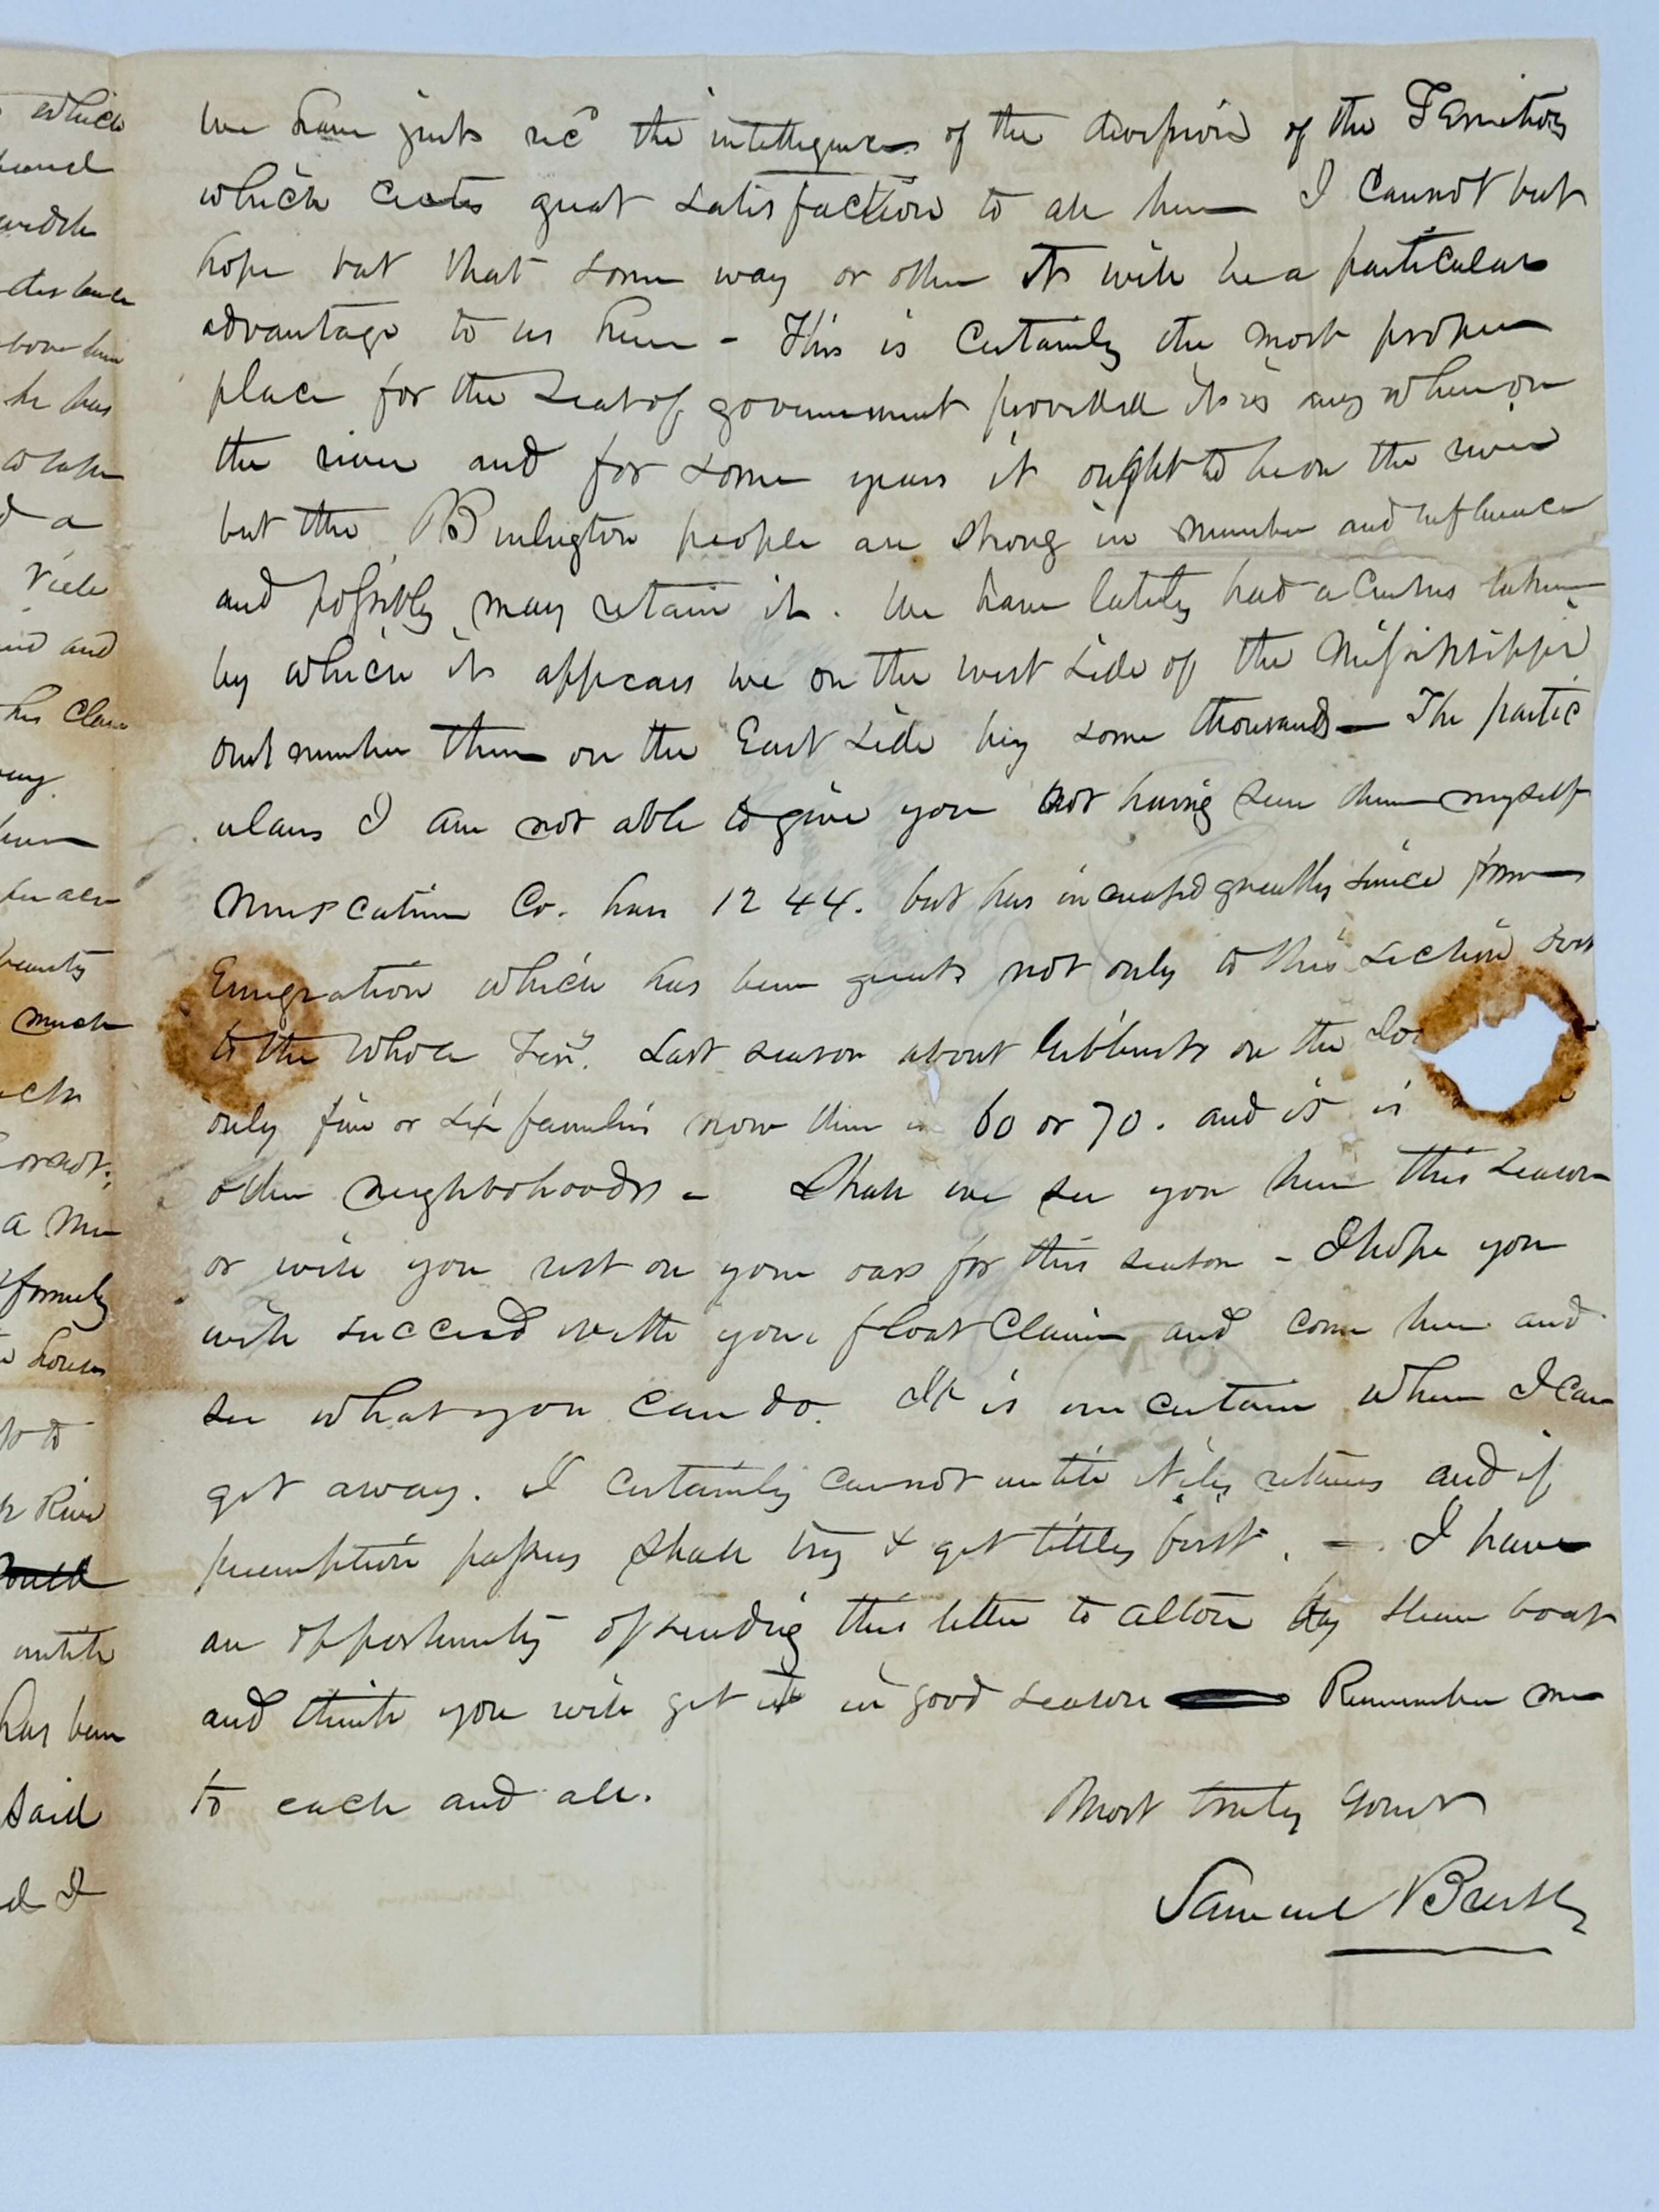 which
he has
d a
and
his Claim
much
a
formerly
River
until
has been
said
d I
We have just rec<sup>d</sup> the intelligence of the division of the Territory
which creates great satisfaction to all here I cannot but
hope but that some way or other it will be a particular
advantage to us here - This is certainly the most proper
place for the seat of government provided it is any where on
the river and for some years it ought to be on the river
but the Burlington people are strong in number and influence
and possibly may retain it. We have lately had a Census taken
by which it appears we on the west side of the Mississippi
out number them on the East side by some thousands - The partic
ulars I am not able to give you not having seen them myself
Muscatine Co. has 1244. but has increased greatly since from
Emigration which has been great not only to this section but
to the whole Ter<sup>y</sup>. Last season about on the
only five or six families now there is 60 or 70. and it is in
other neighbohoods - Shall we see you here this season
or will you rest on your oars for this season - I hope you
will succeed with your float Claim and come here and
see what you can do. It is uncertain when I can
get away. I certainly cannot until returns and if
preemption passes shall try & get titles first. - I have
an opportunity of sending this letter to Alton by steam boat
and think you will get it in good season Remember me
to each and all.
Most truly yours
Samuel